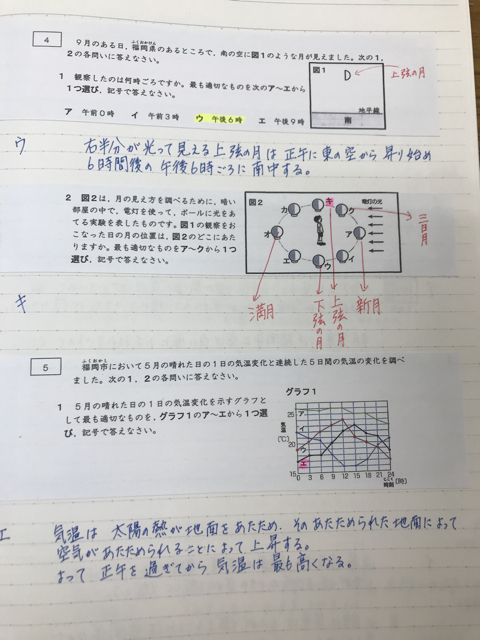 4
９月のある日，福岡県のあるところで，南の空に図1のような月が見えました。次の１，
ふくおかけん
２の各問いに答えなさい。
１　観察したのは何時ごろですか。最も適切なものを次のア〜エから
1つ選び，記号で答えなさい。
ア　午前０時　イ　午前３時　ウ　午後６時　エ　午後９時
図1
上弦の月
地平線
南
ウ
右半分が光って見える上弦の月は正午に東の空から昇り始め
6時間後の午後6時ごろに南中する。
２　図2は，月の見え方を調べるために，暗い
部屋の中で，電灯を使って，ボールに光をあ
てる実験を表したものです。図1の観察をお
こなった日の月の位置は，図2のどこにあた
りますか。最も適切なものをア〜クから1つ
選び，記号で答えなさい。
図2
電灯の光
ア
イ
ウ
エ
オ
カ
キ
ク
三日月
満月
下弦の月
上弦の月
新月
キ
5
福岡市において５月の晴れた日の１日の気温変化と連続した５日間の気温の変化を調べ
ふくおかし
ました。次の１，２の各問いに答えなさい。
１　５月の晴れた日の１日の気温変化を示すグラフと
して最も適切なものを，グラフ1のア〜エから1つ選
び，記号で答えなさい。
グラフ1
気温
(℃)
25
20
15
ア
イ
ウ
エ
0 3 6 9 12 15 18 21 24
時刻 (時)
エ
気温は 太陽の熱が地面をあたため、そのあたためられた地面によって
空気があたためられることによって上昇する。
よって 正午を過ぎてから気温は最も高くなる。